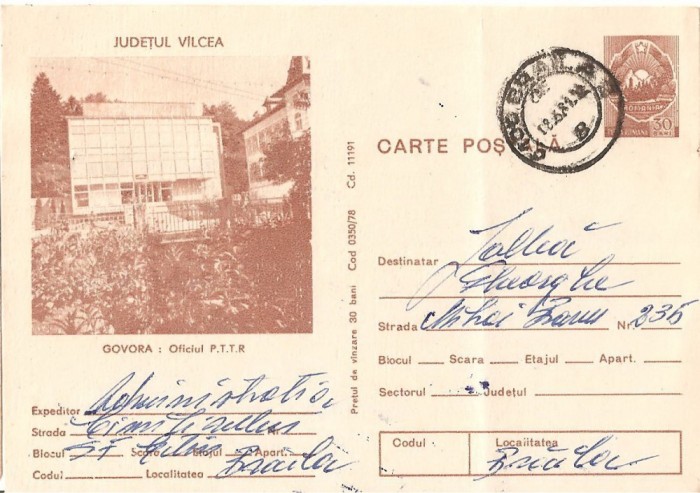 JUDEȚUL VÎLCEA
GOVORA : Oficiul P.T.T.R
Expeditor Administratia
Strada Cimitirelor Nr.
Blocul Sf Scara Etajul Apart.
Codul Localitatea Brăila
Prețul de vînzare 30 bani Cod 0350/78 Cd. 11191
CARTE POȘTALĂ
BRAILA
30
BANI
Destinatar
Gheorghe
Strada Mihai Bravu Nr. 235
Blocul Scara Etajul Apart.
Sectorul Județul
Codul Localitatea
Brăila